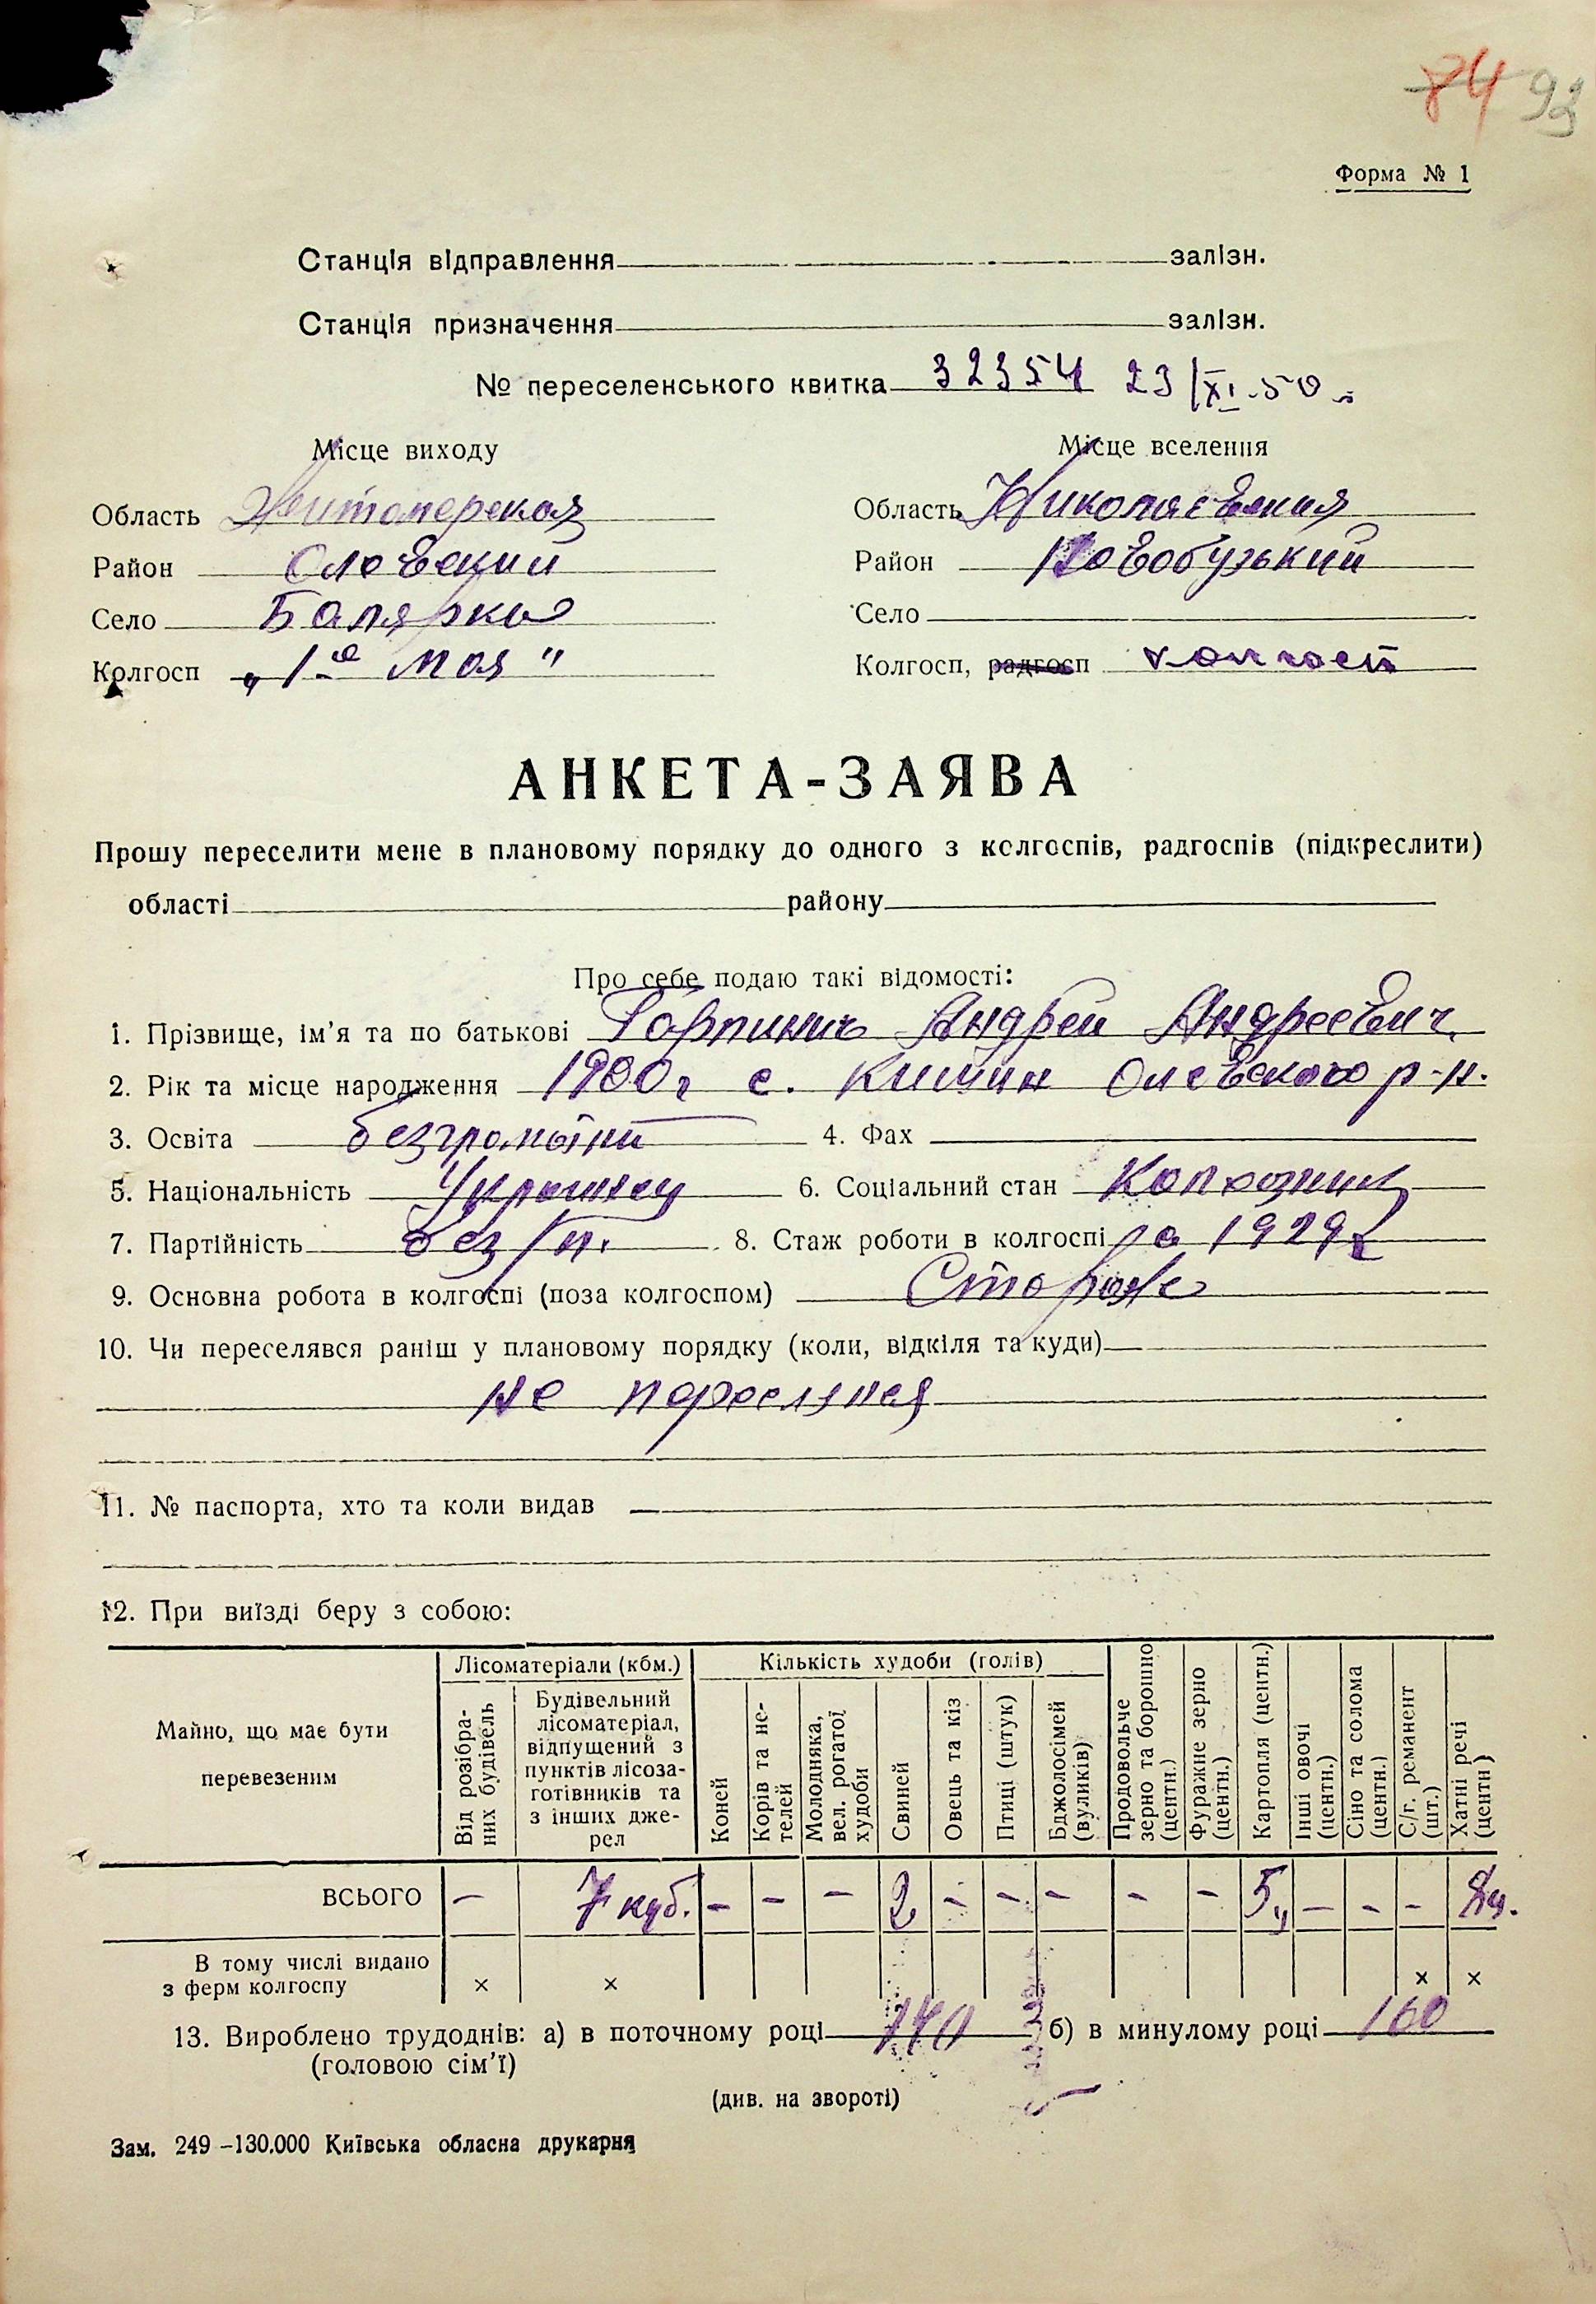 84 93
Форма № 1
Станція відправлення залізн.
Станція призначення залізн.
№ переселенського квитка 32354 23/XI-50
Місце виходу Місце вселення
Область Житомерская Область Николаевская
Район Олевский Район Новобузький
Село Балярка Село
Колгосп „1е мая" Колгосп, радгосп колгосп
АНКЕТА-ЗАЯВА
Прошу переселити мене в плановому порядку до одного з колгоспів, радгоспів (підкреслити)
області району
Про себе подаю такі відомості:
1. Прізвище, ім'я та по батькові Андрей Андреевич
2. Рік та місце народження 1900г с. Кишин Олевского р-н.
3. Освіта 4. Фах
5. Національність Украинец 6. Соціальний стан Колхозник
7. Партійність без/п. 8. Стаж роботи в колгоспі 1929
9. Основна робота в колгоспі (поза колгоспом) Сторож
10. Чи переселявся раніш у плановому порядку (коли, відкіля та куди)
не
11. № паспорта, хто та коли видав
12. При виїзді беру з собою:
Майно, що має бути перевезеним
Лісоматеріали (кбм.)
Від розібраних будівель
Будівельний лісоматеріал, відпущений з пунктів лісозаготівників та з інших джерел
Кількість худоби (голів)
Коней
Корів та нетелей
Молодняка, вел. рогатої худоби
Свиней
Овець та кіз
Птиці (штук)
Бджолосімей (вуликів)
Продовольче зерно та борошно (центн.)
Фуражне зерно (центн.)
Картопля (центн.)
Інші овочі (центн.)
Сіно та солома (центн.)
С/г. реманент (шт.)
Хатні речі (центн)
ВСЬОГО – 7 куб. – – – 2 – – – – – 5ц – – – 2ц.
В тому числі видано
з ферм колгоспу × × × ×
13. Вироблено трудоднів: а) в поточному році 140 б) в минулому році 160
(головою сім'ї)
(див. на звороті)
Зам. 249 –130.000 Київська обласна друкарня